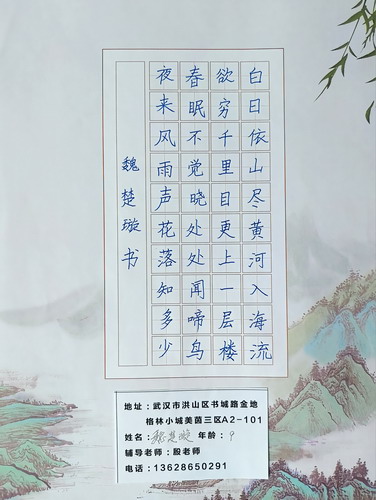 白日依山尽黄河入海流
欲穷千里目更上一层楼
春眠不觉晓处处闻啼鸟
夜来风雨声花落知多少
魏楚璇书
地址：武汉市洪山区书城路金地
格林小城美茵三区A2-101
姓名：魏楚璇 年龄：9
辅导老师：殷老师
电话：13628650291